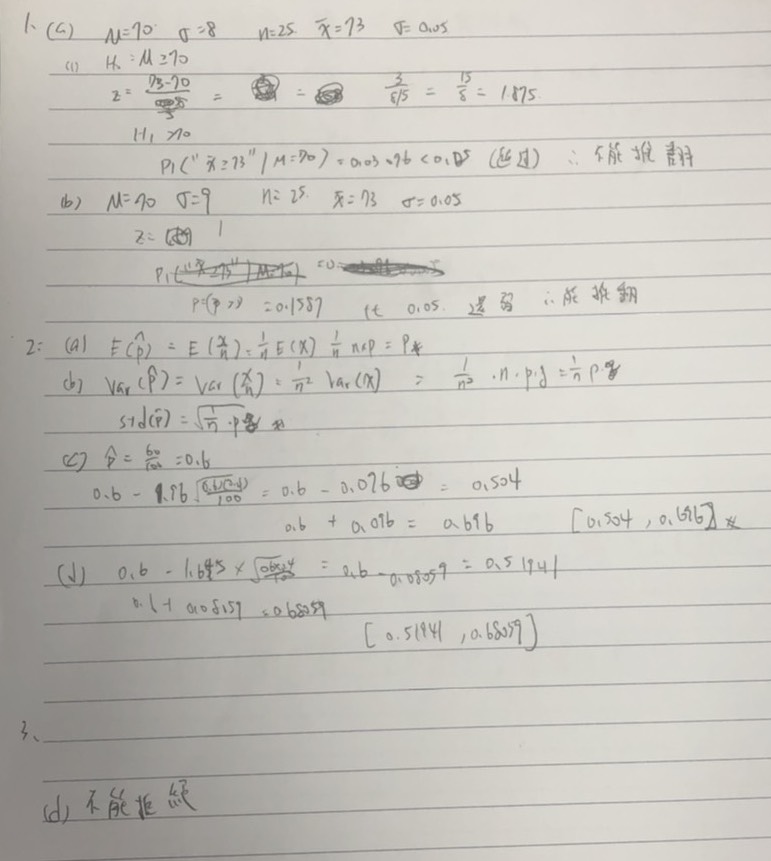 1. (a) M=70 σ=8 n=25 x̄=73 σ=0.05
(1) H. : M≥70
z = 73-70 / 5 = = 3 / 8/5 = 15/8 = 1.875
H₁ >70
P₁("x̄≥73" | M=70) = 0.03 <0.05 ∴ 不能推翻
(b) M=70 σ=9 n=25 x̄=73 σ=0.05
z= 1
P₁("x̄≥73" | M=70) =0
=0.1587 比 0.05 還 ∴ 能推翻
2: (a) E(p̂) = E(x/n) = 1/n E(X) 1/n n×p = P*
(b) Var(p̂) = Var(x/n) = 1/n² Var(X) = 1/n² ·n·p·q = 1/n p·q
std(p̂) = √(1/n ·pq) *
(c) p̂ = 60/100 =0.6
0.6 - 1.96 √ /100 = 0.6 - 0.096 = 0.504
0.6 + 0.096 = 0.696 [0.504 , 0.696] *
(d) 0.6 - 1.645 × √ = 0.6 - 0.08059 = 0.51941
0.6+ 0.08059 =0.68059
[0.51941 , 0.68059]
3、
(d) 不能拒絕